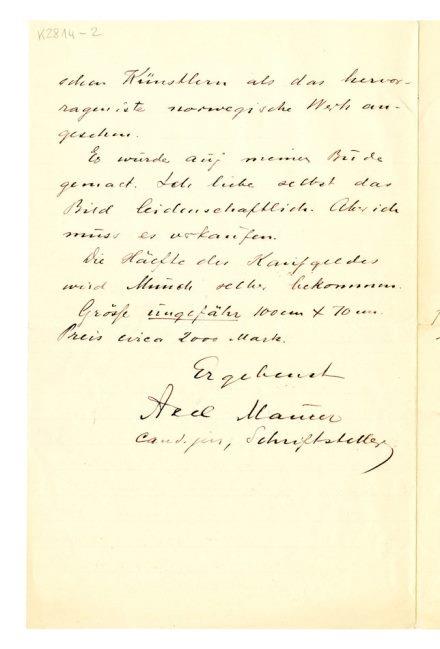 K2814-2
schen Künstlern als das hervor-
ragendste norwegische Werk an-
gesehen.
Es wurde auf meiner Bude
gemact. Ich liebe selbst das
Bild leidenschaftlich. Aber ich
muss es verkaufen.
Die Häfte des Kaufgeldes
wird Munch selber bekommen.
Grösse ungefähr 100cm X 70cm.
Preis circa 2000 Mark.
Ergebenst
Maurer
cand. jur, Schriftsteller